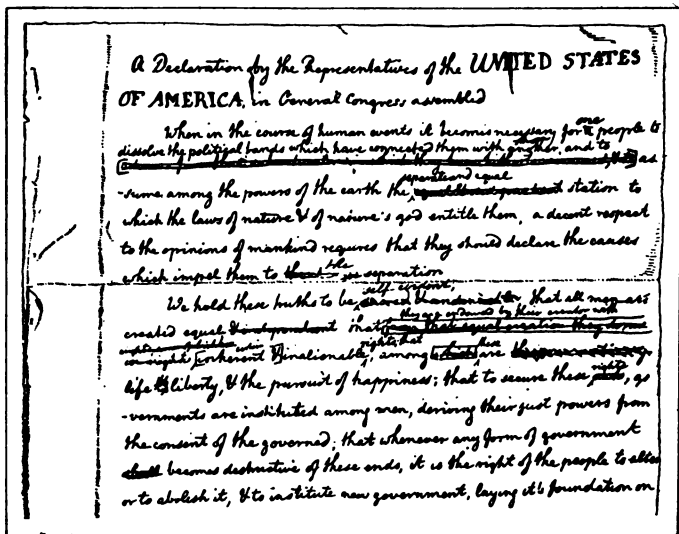 A Declaration by the Representatives of the UNITED STATES
OF AMERICA, in General Congress assembled
When in the course of human events it becomes necessary for one people to
dissolve the political bands which have connected them with another, and to
as
-sume among the powers of the earth the separate and equal station to
which the laws of nature & of nature's god entitle them, a decent respect
to the opinions of mankind requires that they should declare the causes
which impel them to the separation
We hold these truths to be self-evident, that all men are
created equal that they are endowed by their creator with
[inherent &] inalienable rights, that among these are
life liberty, & the pursuit of happiness; that to secure these rights, go
-vernments are instituted among men, deriving their just powers from
the consent of the governed; that whenever any form of government
becomes destructive of these ends, it is the right of the people to alter
or to abolish it, & to institute new government, laying it's foundation on